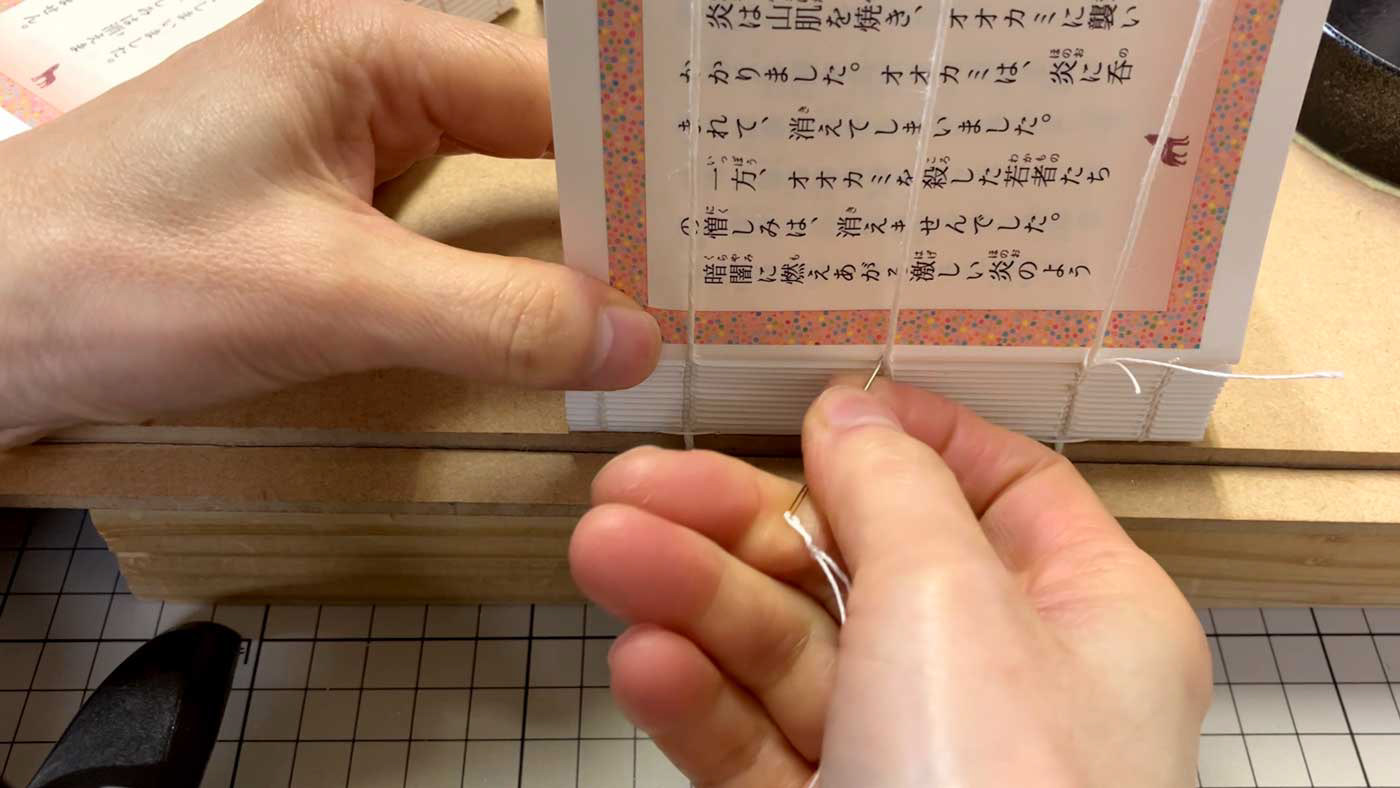 炎は山肌を焼き、オオカミに襲い
かかりました。オオカミは、炎に呑
まれて、消えてしまいました。
一方、オオカミを殺した若者たち
の憎しみは、消えませんでした。
暗闇に燃えあがる激しい炎のよう
しまいました。
ません。